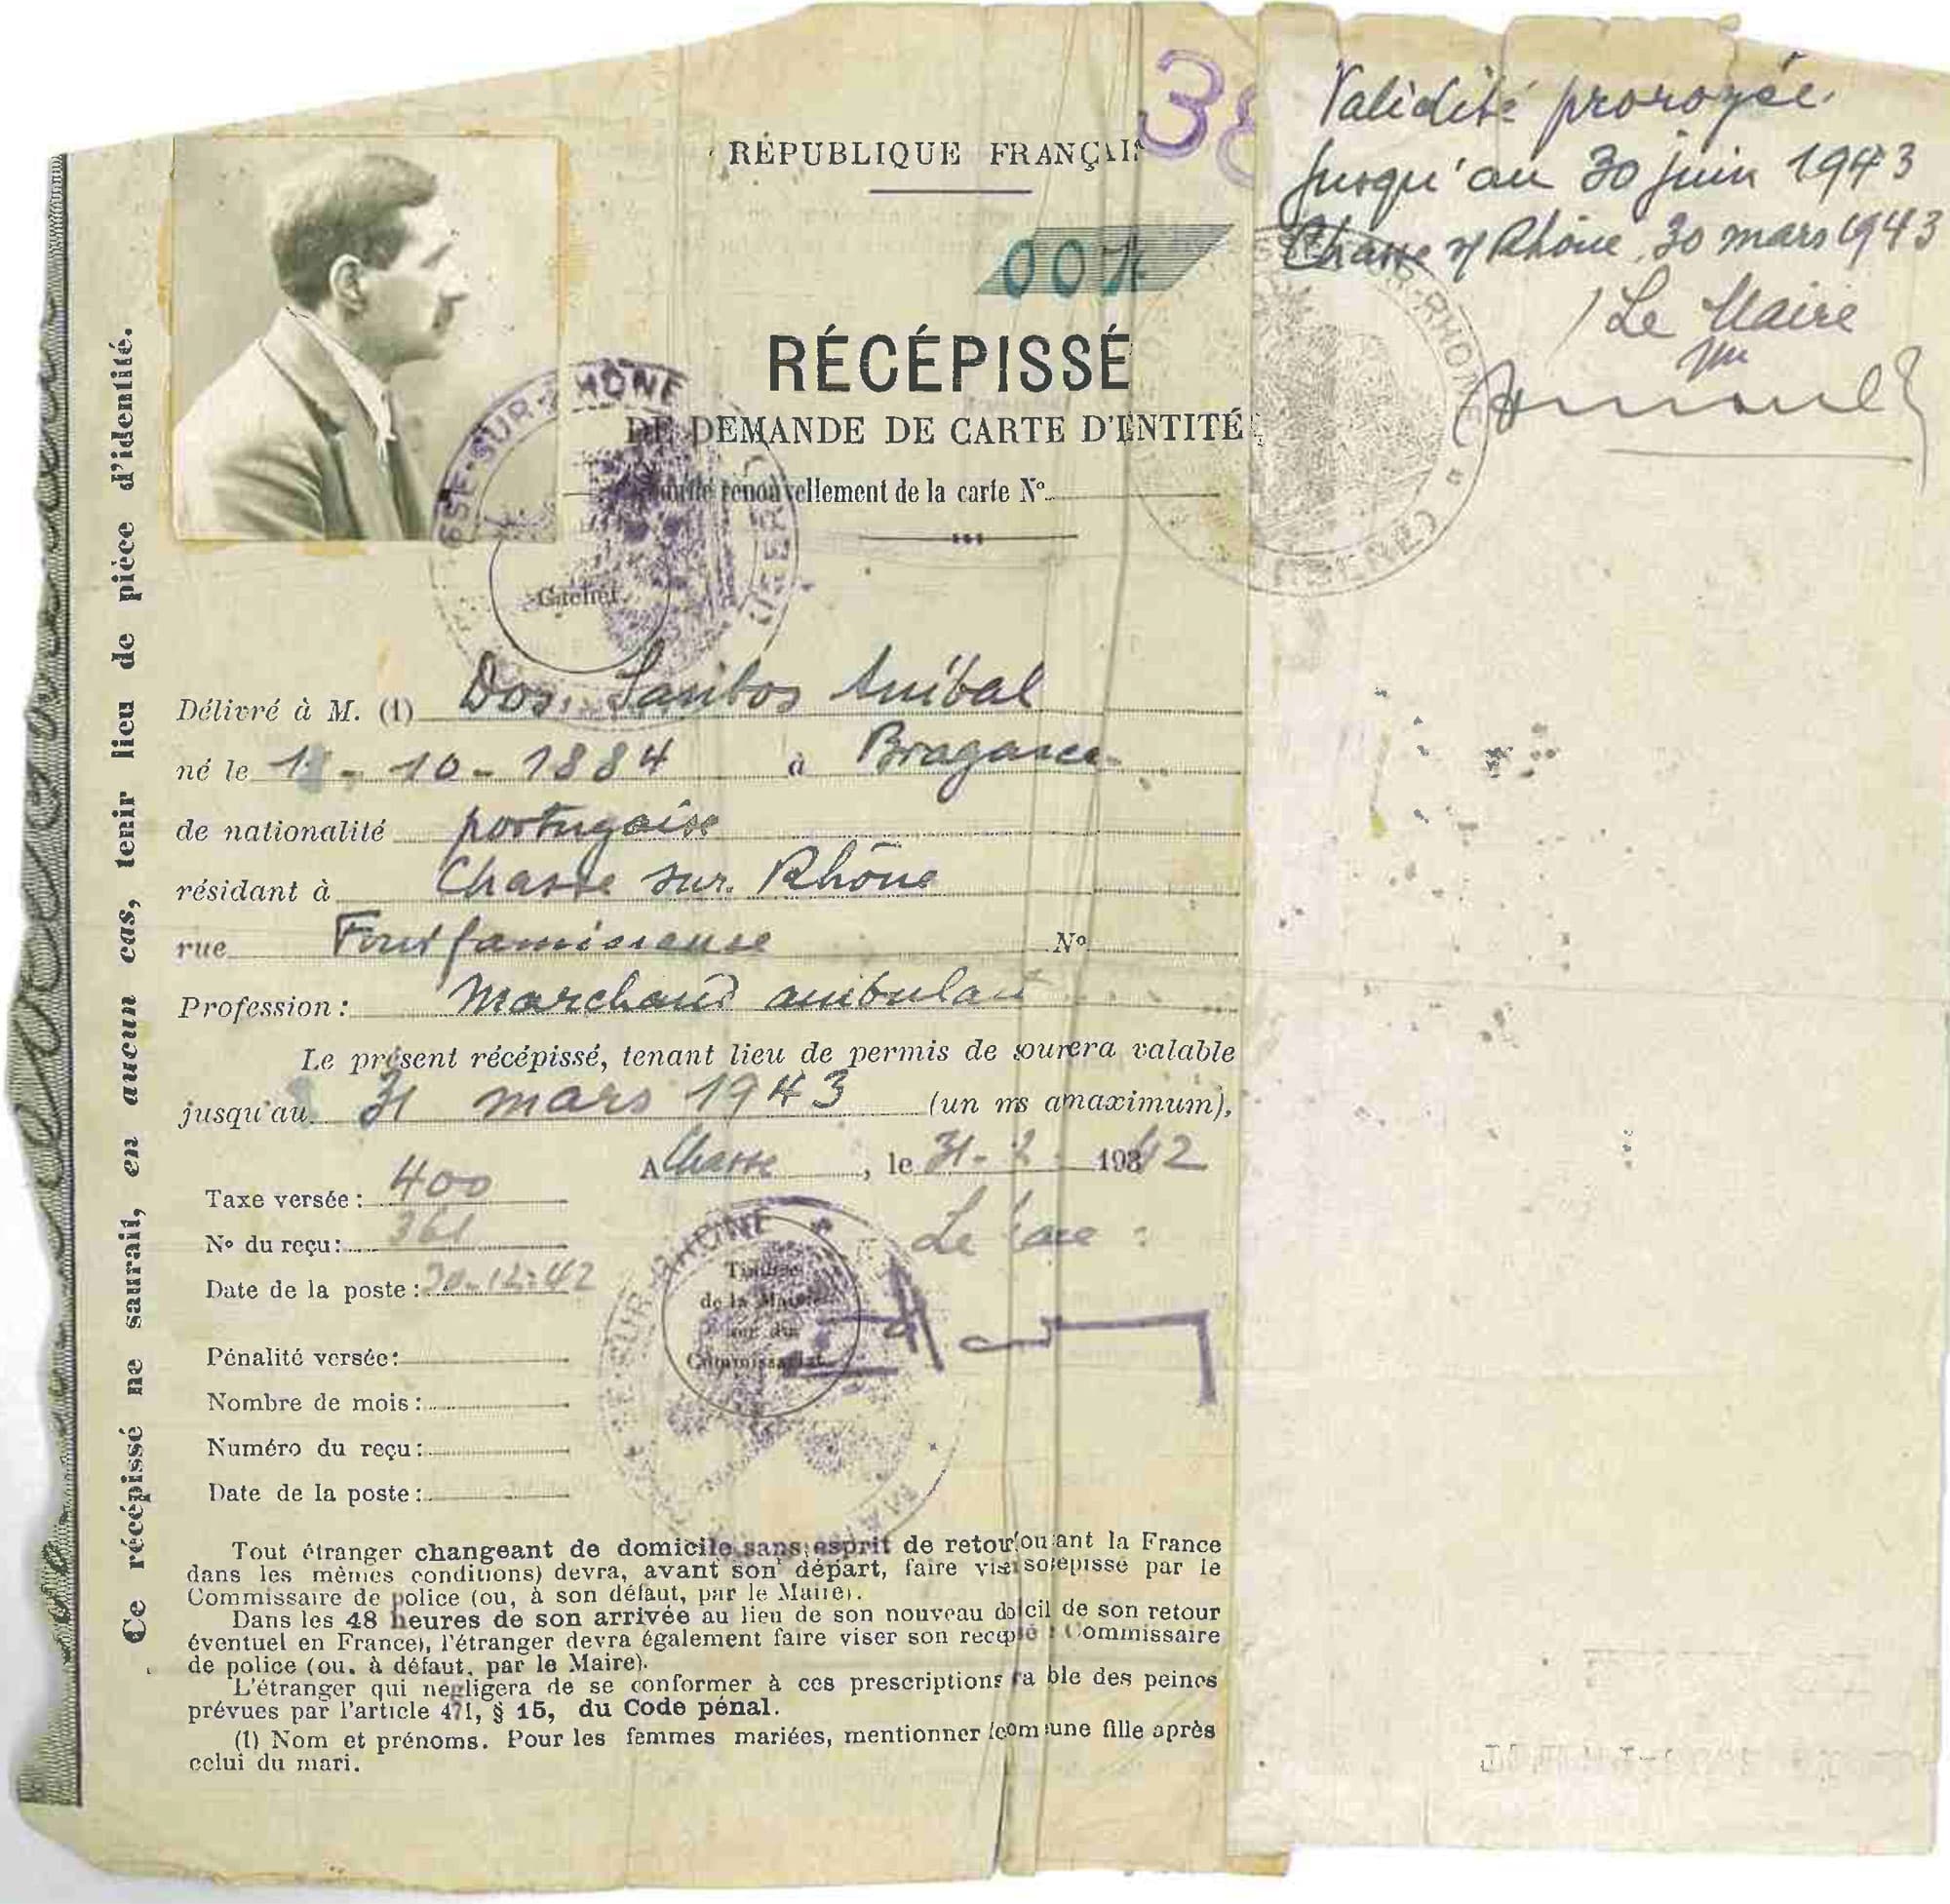 38
Validité prorogée
jusqu'au 30 juin 1943
Chasse s/ Rhône, 30 mars 1943
Le Maire
RÉPUBLIQUE FRANÇAIS
007
RÉCÉPISSÉ
DE DEMANDE DE CARTE D'ENTITÉ
renouvellement de la carte Nº
SSE-SUR-RHONE
(ISERE)
-RHONE
(ISERE)
Cachet
Délivré à M. (1) Dos Santos Anibal
né le 1 - 10 - 1884 à Bragance
de nationalité portugaise
résidant à Chasse sur Rhône
rue Nº
Profession : Marchand ambulant
Le présent récépissé, tenant lieu de permis de sourera valable
jusqu'au 31 mars 1943 (un ms amaximum),
A Chasse, le 31- 42
Le
Taxe versée : 400
Nº du reçu : 361
Date de la poste : 30-12-42
SUR-RHONE
Timbre
de la Mairie
ou du
Commissariat
Pénalité versée :
Nombre de mois :
Numéro du reçu :
Date de la poste :
Tout étranger changeant de domicile sans esprit de retour ou ant la France
dans les mêmes conditions) devra, avant son départ, faire épissé par le
Commissaire de police (ou, à son défaut, par le Maire).
Dans les 48 heures de son arrivée au lieu de son nouveau cil de son retour
éventuel en France), l'étranger devra également faire viser son Commissaire
de police (ou, à défaut, par le Maire).
L'étranger qui négligera de se conformer à ces prescriptions ble des peines
prévues par l'article 471, § 15, du Code pénal.
(1) Nom et prénoms. Pour les femmes mariées, mentionner une fille après
celui du mari.
Ce récépissé ne saurait, en aucun cas, tenir lieu de pièce d'identité.